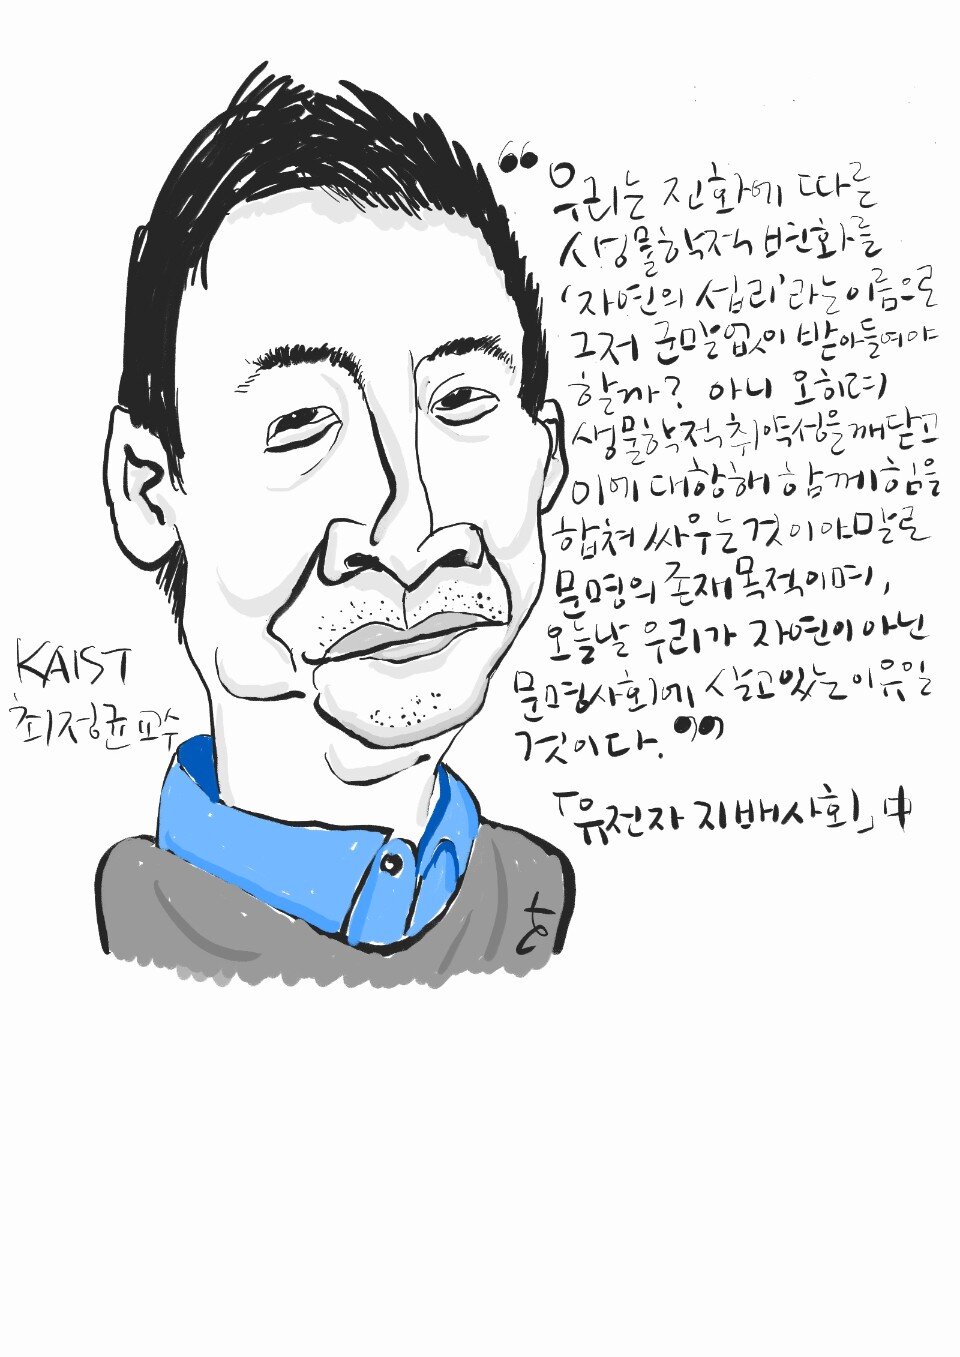 “우리는 진화에 따를
생물학적 변화를
‘자연의 섭리’라는 이름으로
그저 군말없이 받아들여야
할까? 아니 오히려
생물학적 취약성을 깨닫고
이에 대항해 함께 힘을
합쳐 싸우는 것이야말로
문명의 존재 목적이며,
오늘날 우리가 자연이 아닌
문명사회에 살고 있는 이유일
것이다.”
「유전자 지배사회」中
KAIST
최정균 교수